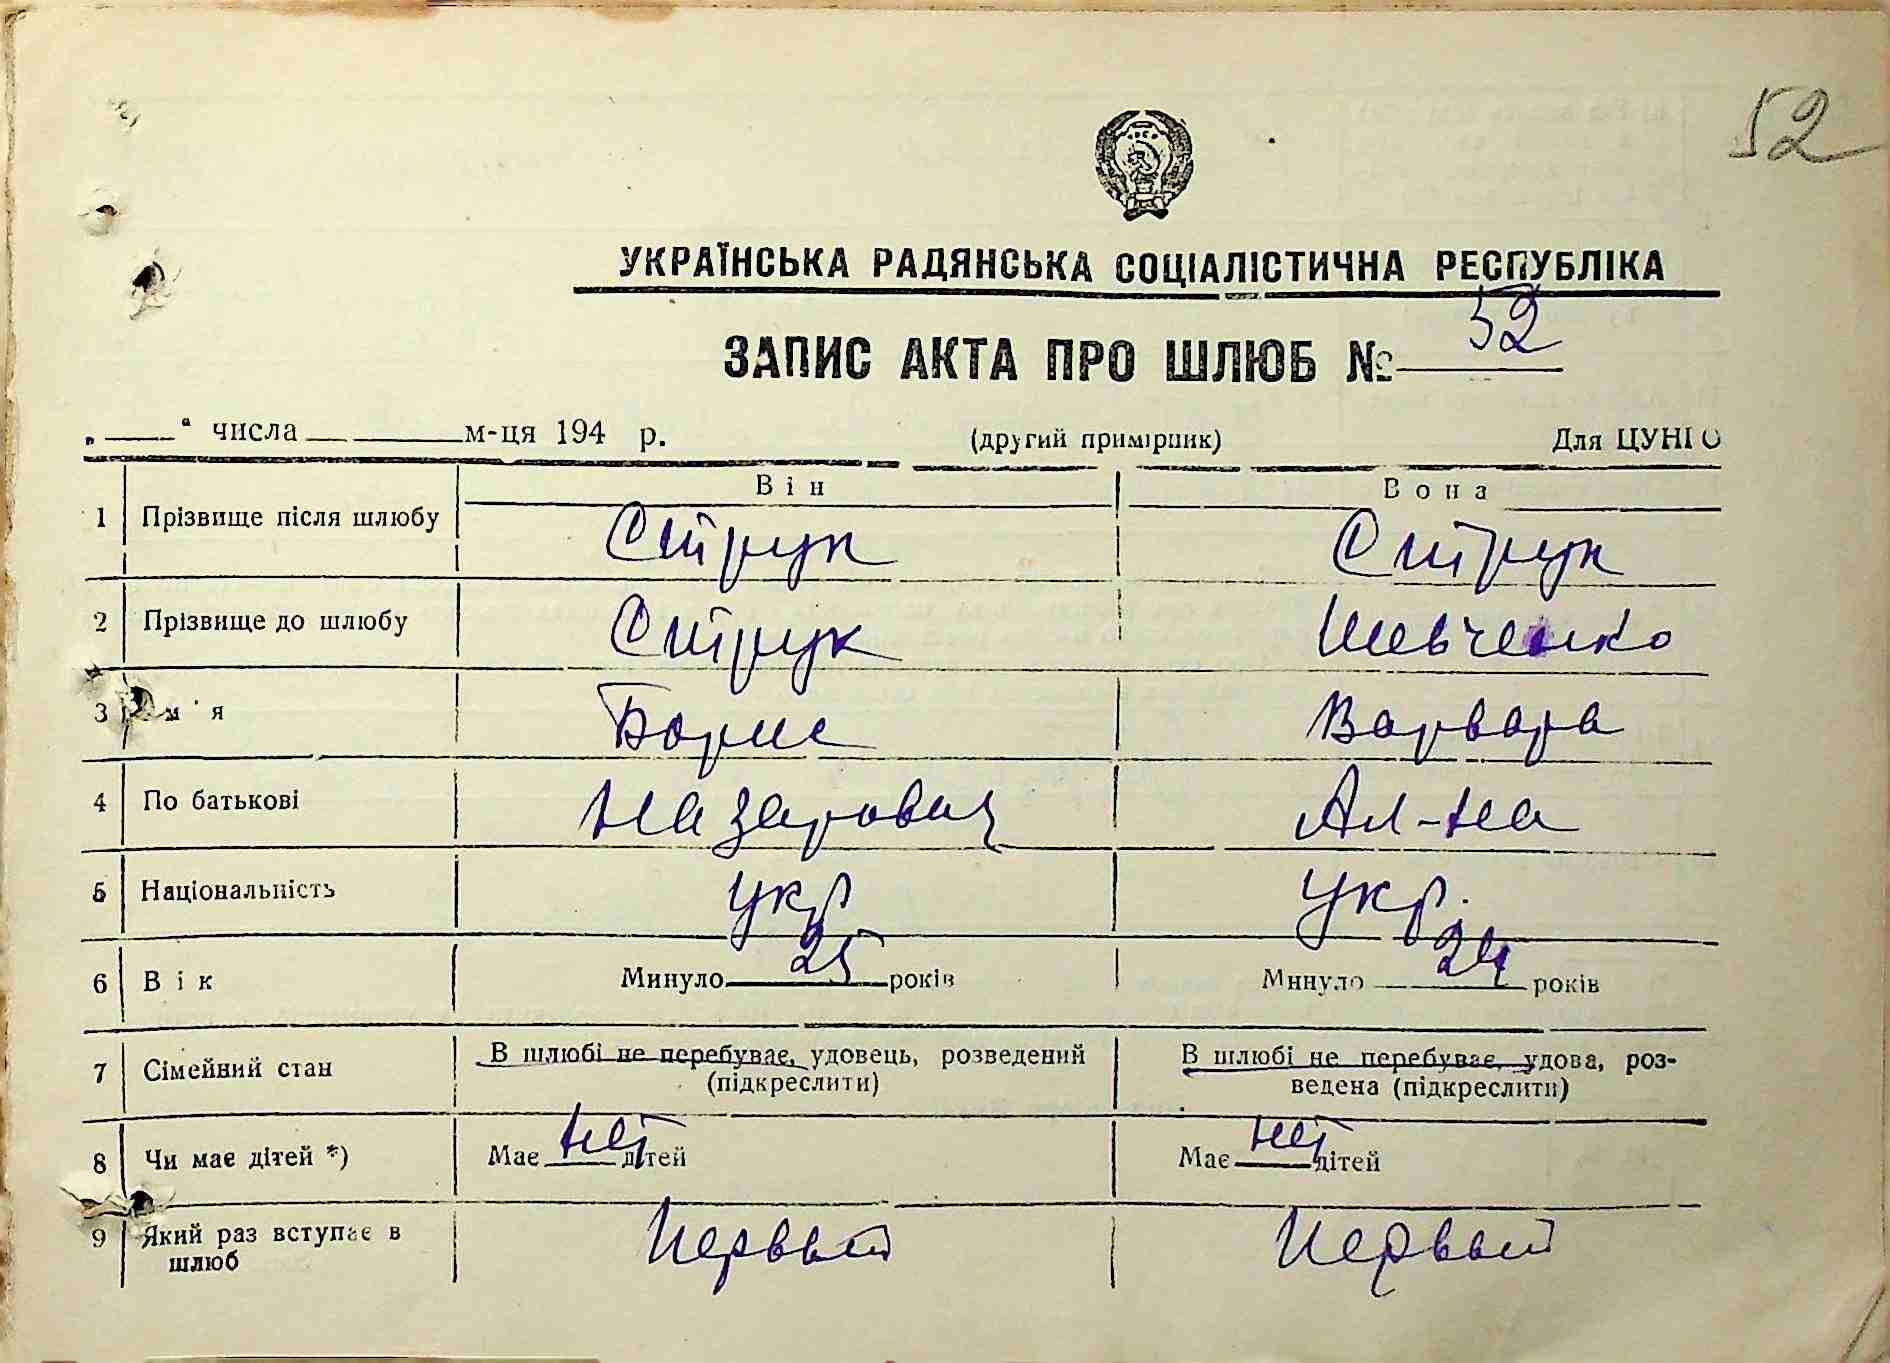 52
УКРАЇНСЬКА РАДЯНСЬКА СОЦІАЛІСТИЧНА РЕСПУБЛІКА
ЗАПИС АКТА ПРО ШЛЮБ № 52
„ “ числа м-ця 194 р. (другий примірник) Для ЦУНГО
Він Вона
1 Прізвище після шлюбу Струк Струк
2 Прізвище до шлюбу Струк Шевченко
3 м'я Борис Варвара
4 По батькові Назарович Ал-на
5 Національність укр укр.
6 Вік Минуло 25 років Минуло 24 років
7 Сімейний стан В шлюбі не перебуває, удовець, розведений В шлюбі не перебуває, удова, роз-
(підкреслити) ведена (підкреслити)
8 Чи має дітей *) Має нет дітей Має нет дітей
9 Який раз вступає в Первый Первый
шлюб